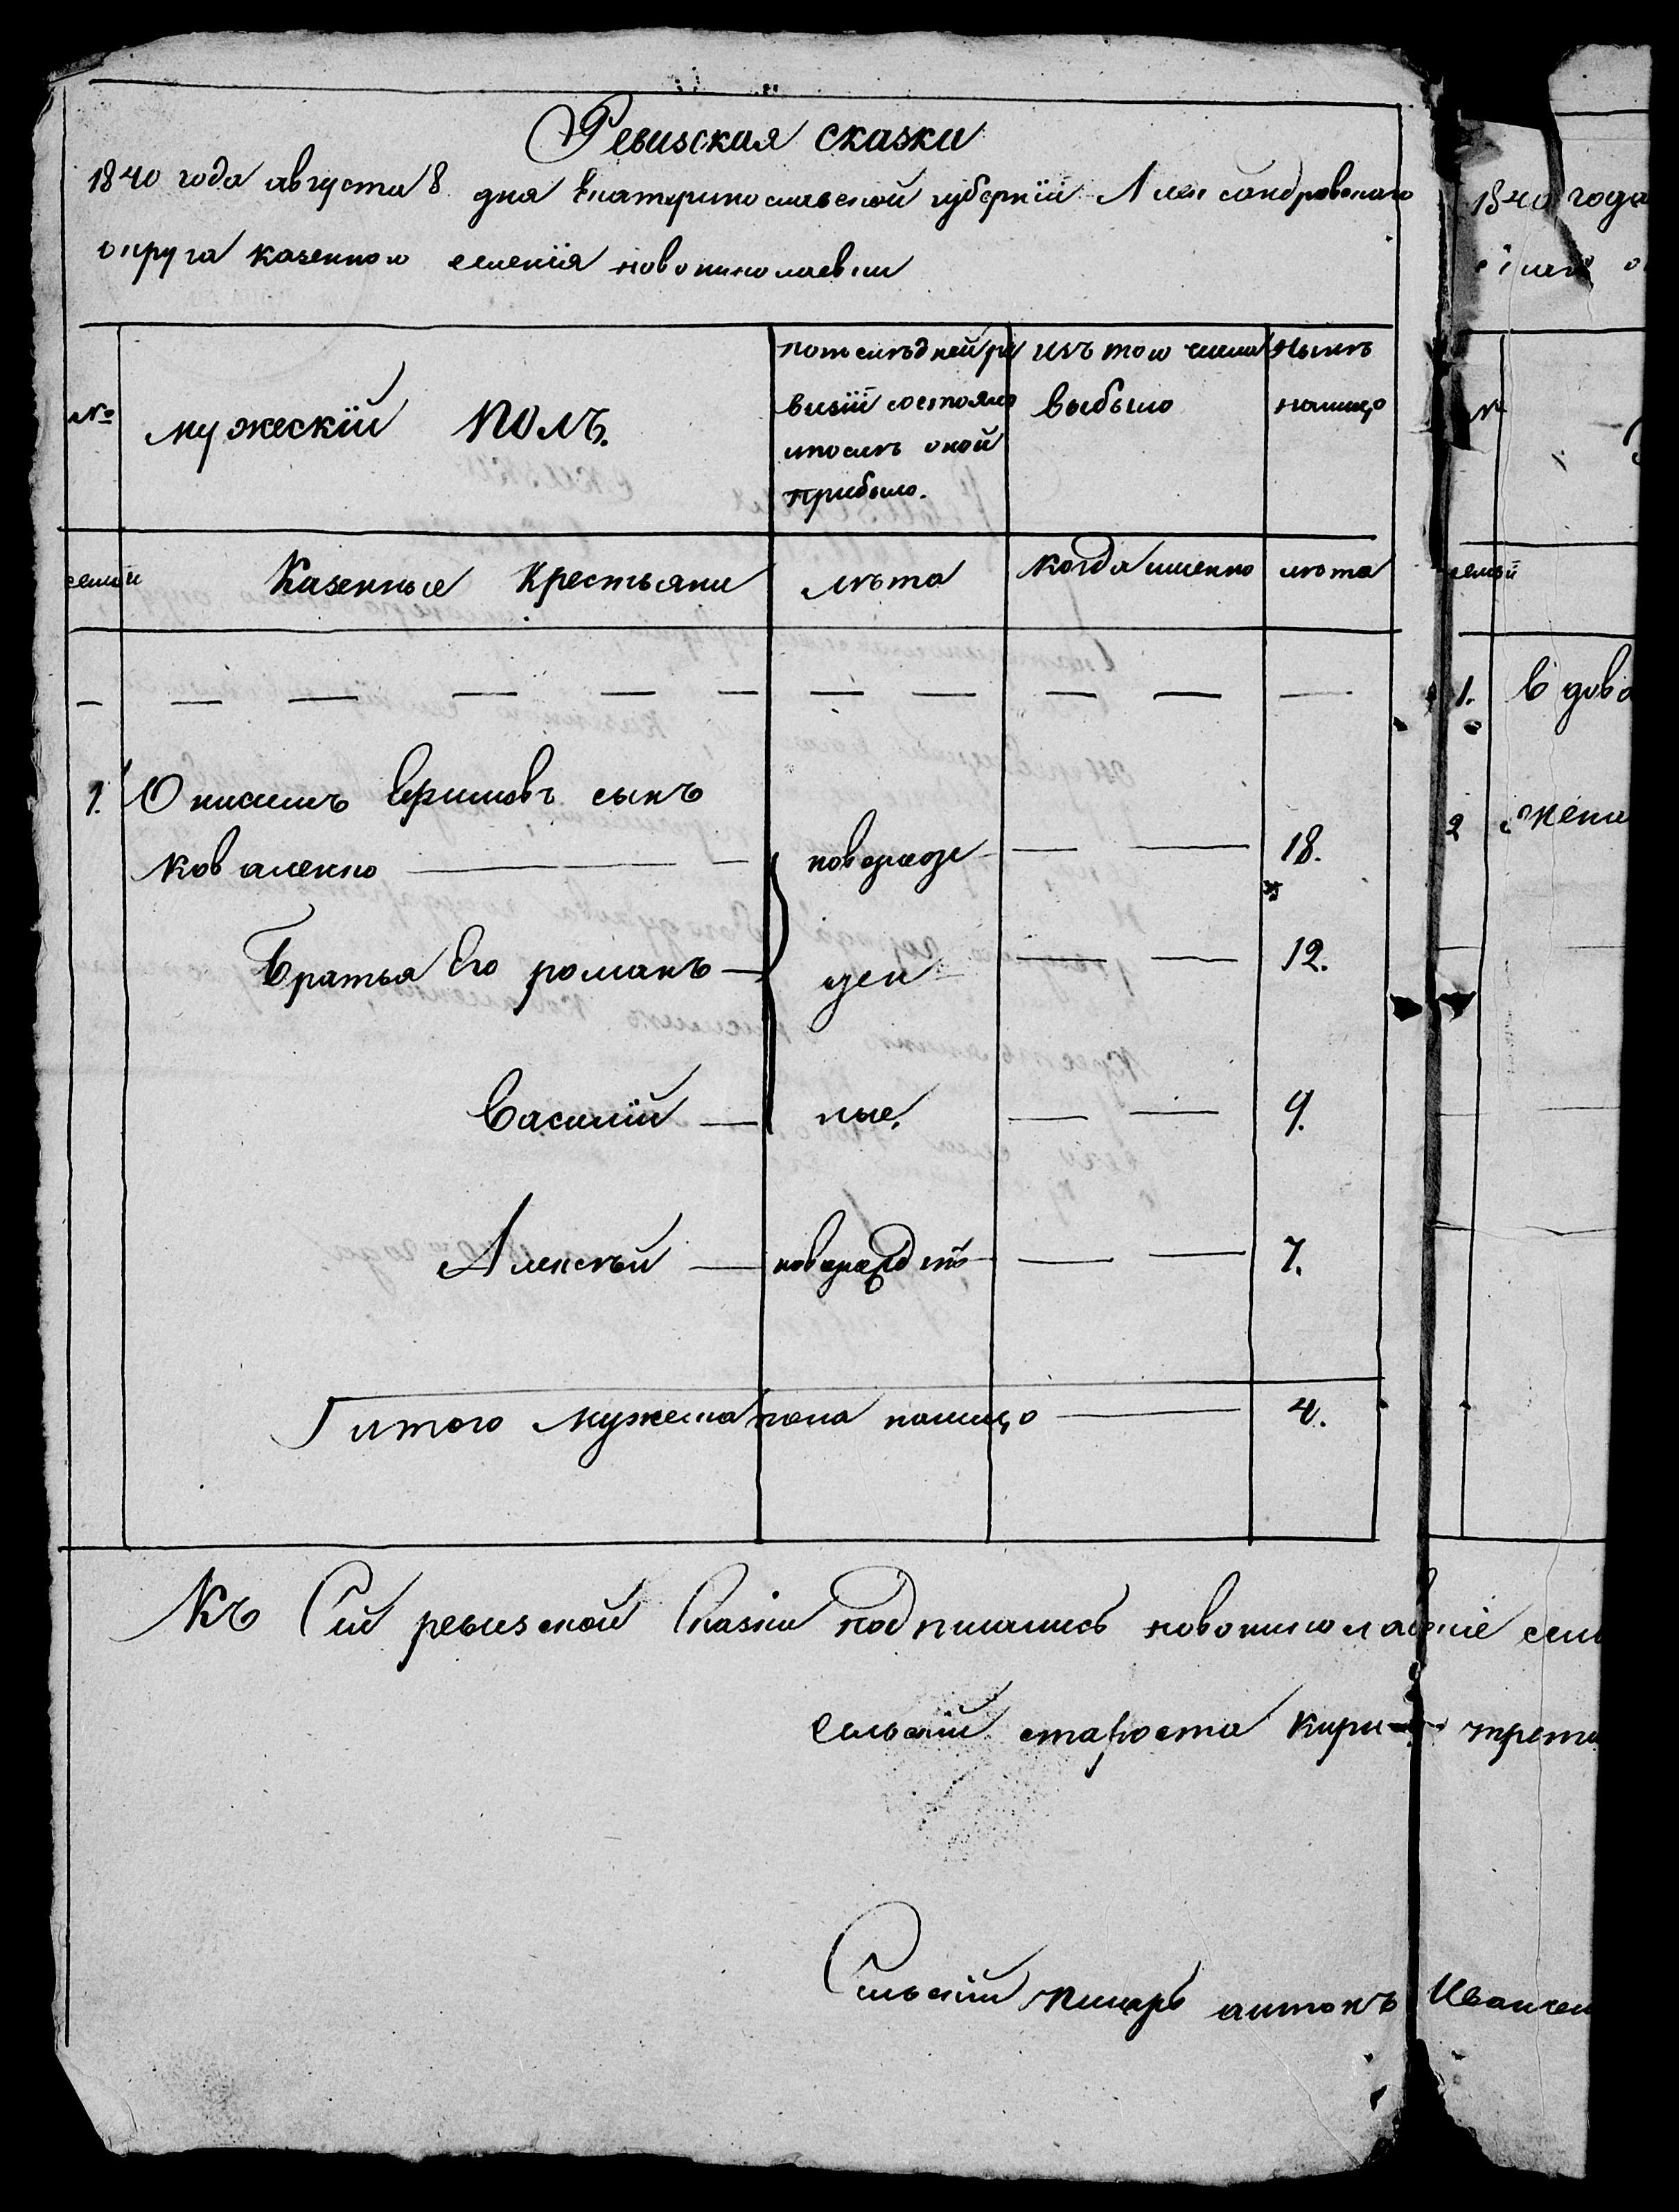 Ревизская сказки
1840 года августа 8 дня Екатеринославской губернїй Александровского
округа казенного селенїя новониколаевки
№
мужескїй полъ.
попослѣдней ре
визїй состояло
ипослѣ оной
прибыло.
изъ того числа
выбыло
Нынѣ
налицо
семьи
Казенные Крестьяни
лѣта
когда именно
лѣта
1. Онисимъ Ефимовъ сынъ
коваленко новорож 18.
Братья Его романъ ден 12.
Василїй ные. 9.
Алексѣй новорожд 7.
итого мужеска пола налицо 4.
Къ Сей ревизской Сказки подписались новониколаевкіе сель
Сельскїй староста Кири трети
Сельскїй писарь антонъ Иванчен
1840 года
№
семьй
1. вдова
2 жена